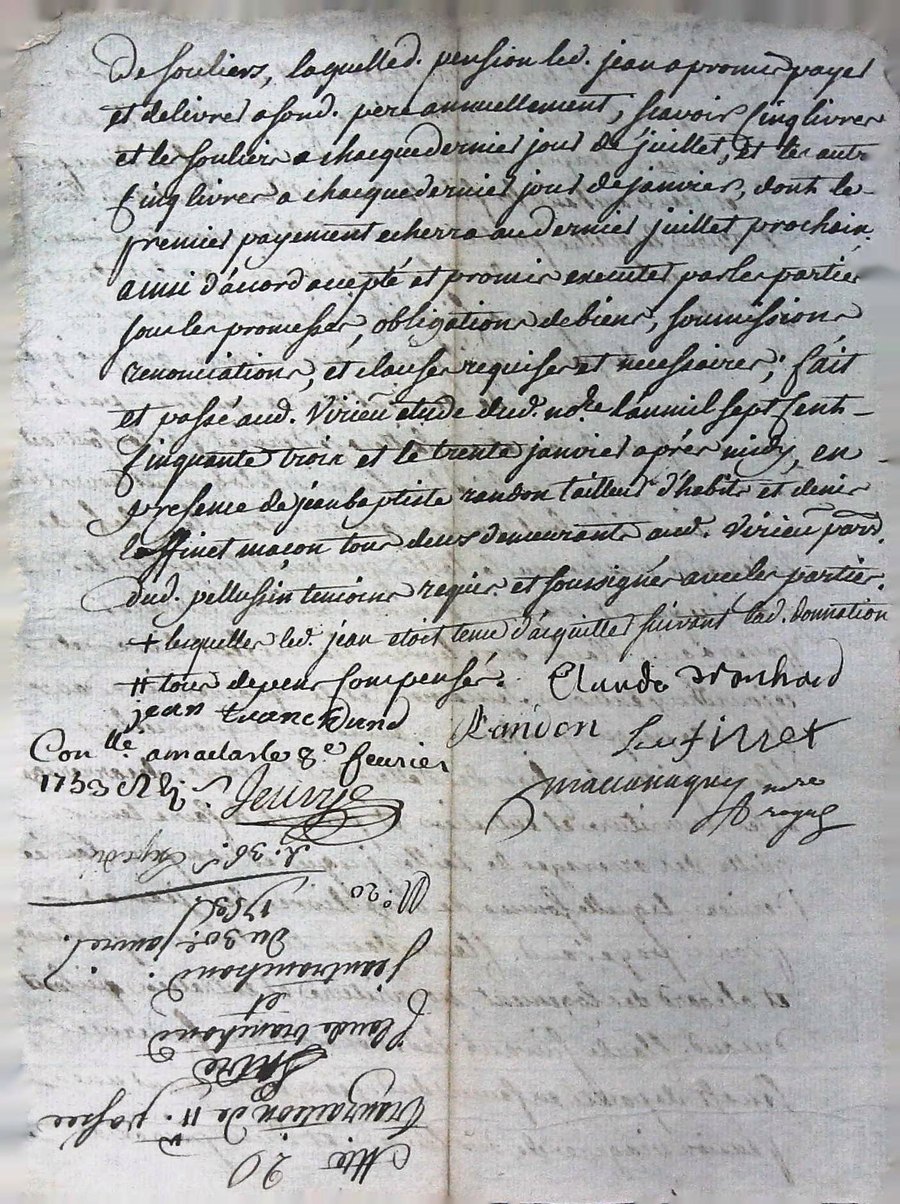 de souliers, laquelled. pension led. jean a promis payer
et delivrer a sond. pere annuellement, scavoir cinq livres
et les souliers a chacque dernier jour de juillet, et les autr
cinq livres a chacque dernier jour de janvier, dont le
premier payement echerra au dernier juillet prochain
ainsi d'acord accepté et promis executer par les parties
sous les promesses, obligations de biens, soumissions
renonciations, et clauses requises et necessaires; fait
et passé aud. Virieu etude dud. nore. l'an mil sept cent
cinquante trois et le trente janvier après midy, en
presence de jean baptiste randon tailleur d'habits et denis
maçon tous deux demeurants aud. Virieu parr.
dud. pellussin temoins requis et soussignés avec les parties.
+ lesquelles led. jean etoit tenu d'acquitter suivant lad. donnation
# tous depens compensés.
Claude
jean
Randon
Con.lle a malarle 8e fevrier
1753
nore
royal
R. 36s. Expedié
No. 20
1753.
du 30e janvier.
jean tranchand
et
Claude tranchand
Entre
Tranzaction de #. passée
20